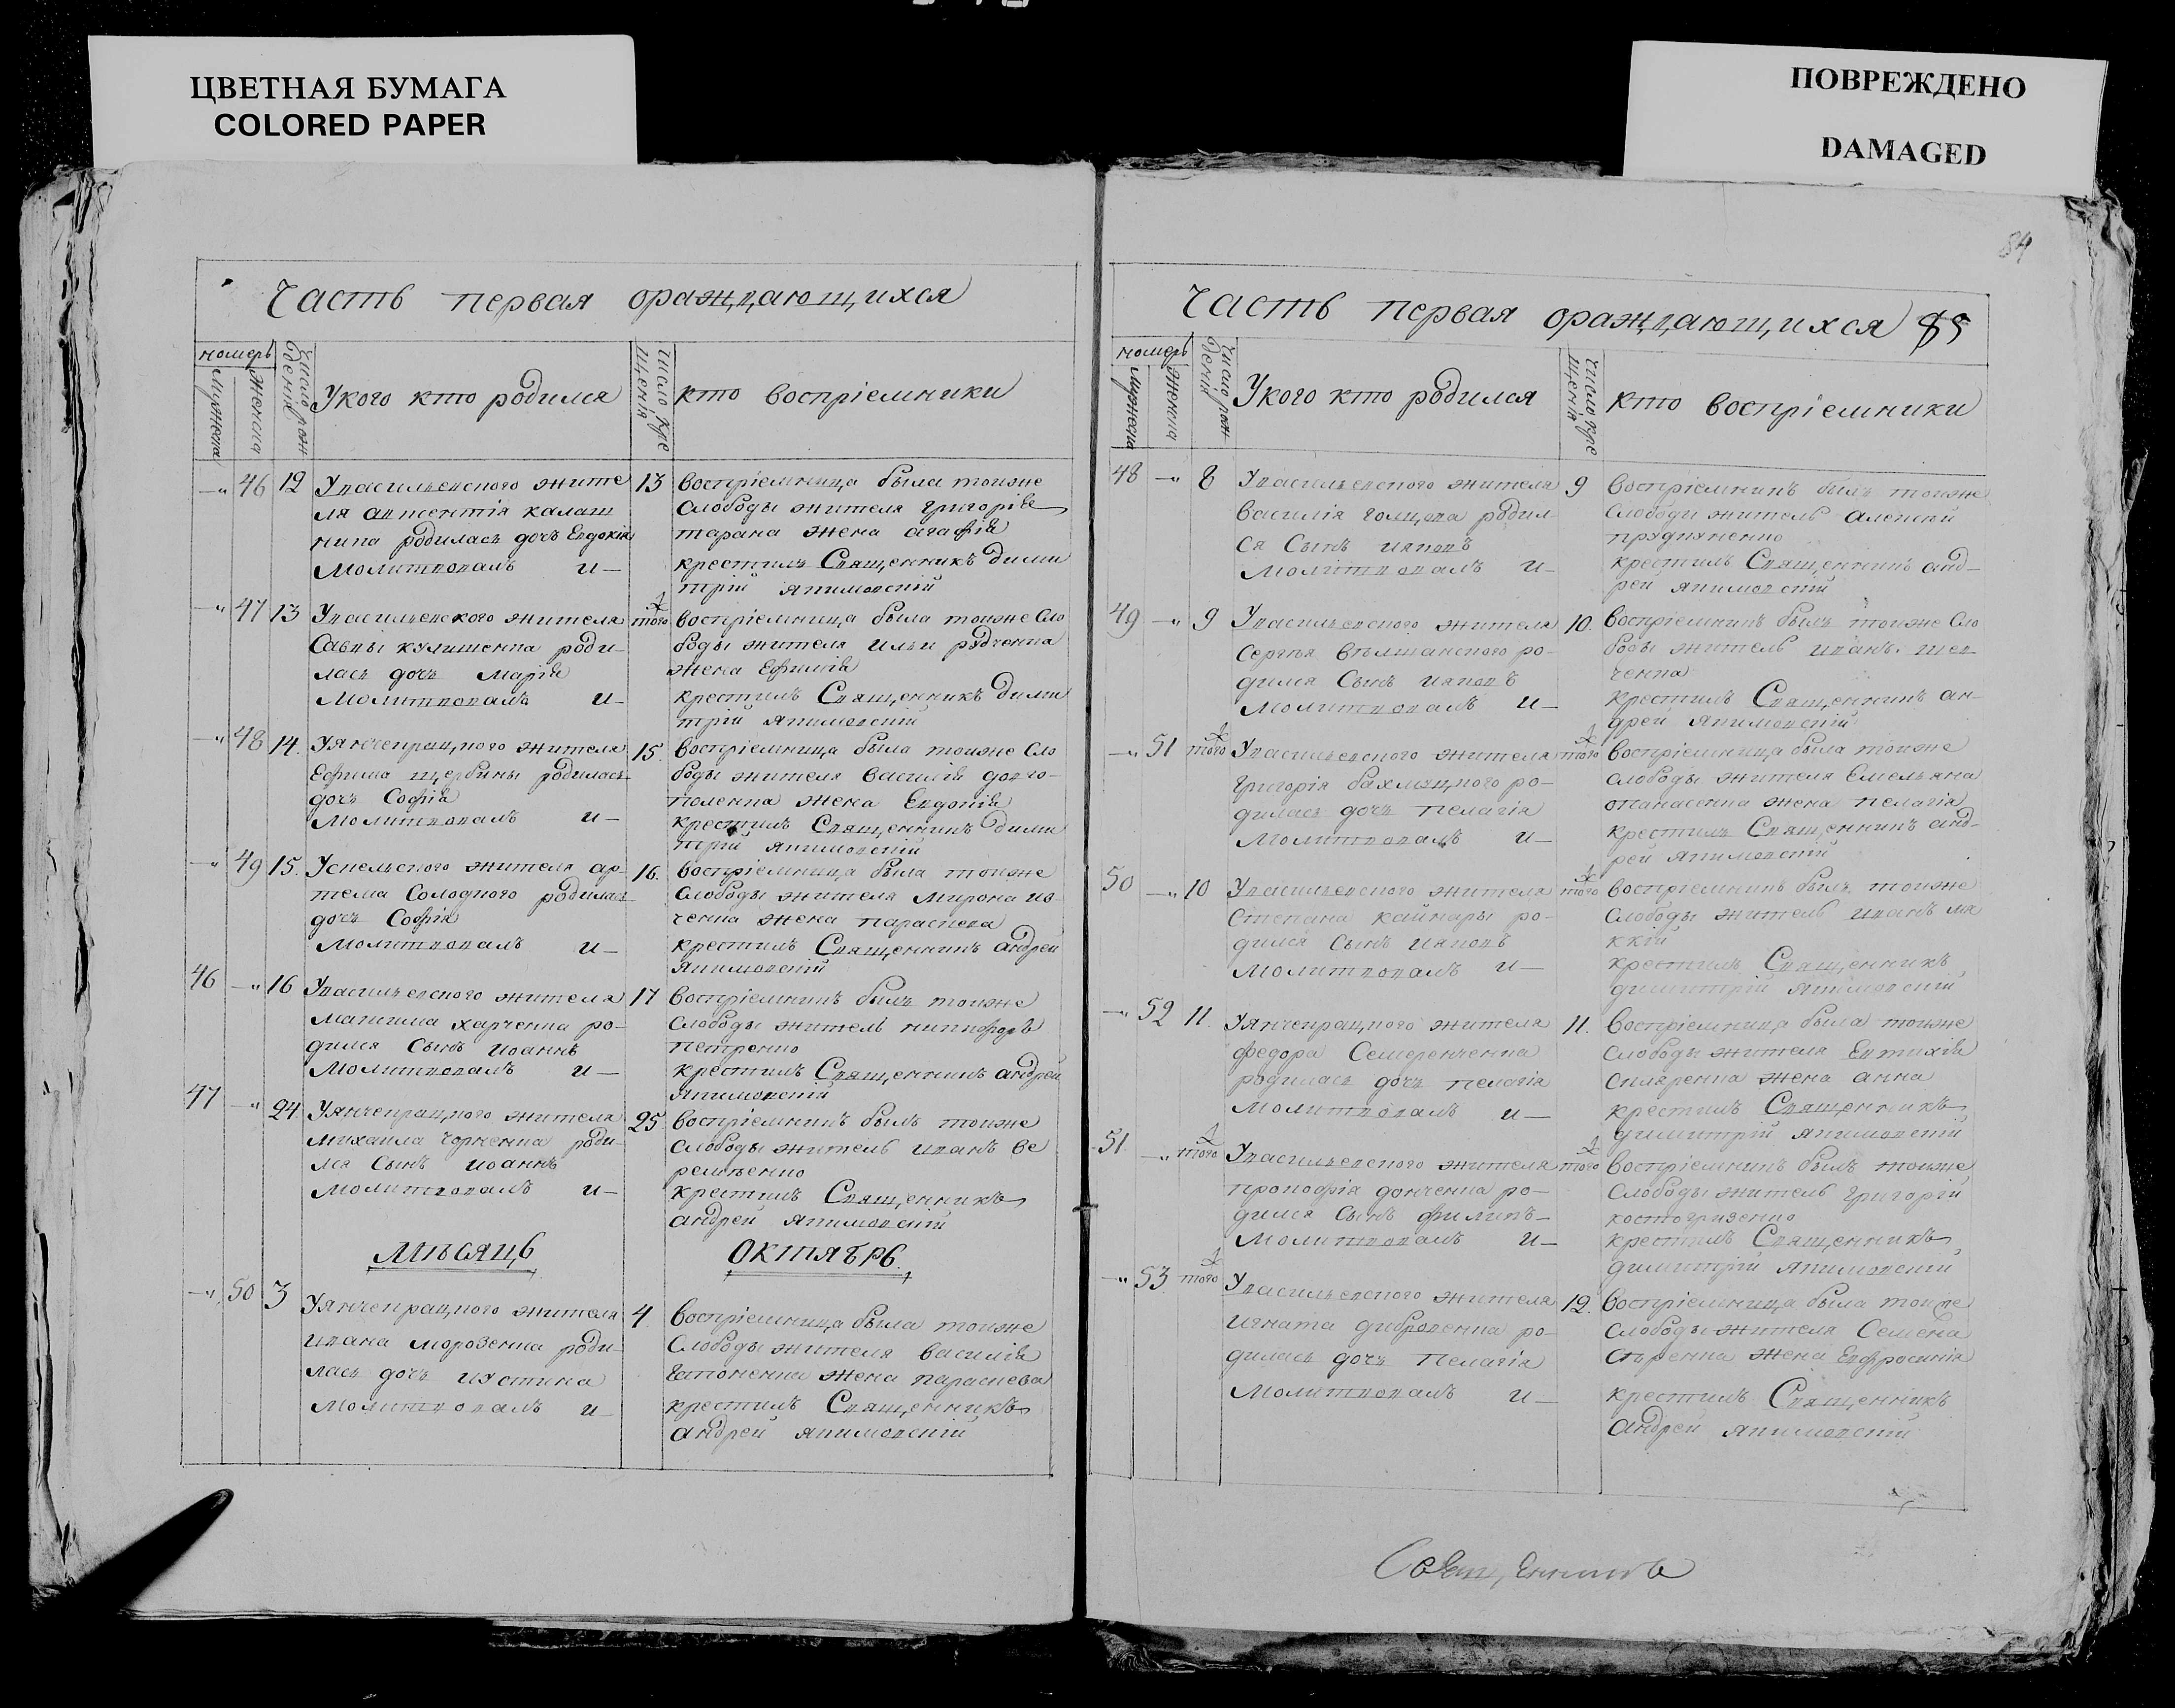 ЦВЕТНАЯ БУМАГА
COLORED PAPER
ПОВРЕЖДЕНО
DAMAGED
84
Часть первая ораждающихся
номерь
мужеска
женска
число рождения
Укого кто родился
число крещенія
кто воспріемники
46 12 Увасильевского жите
ля авксентія калаш
ника родилась дочь Евдокія
Молитвовалъ и—
13 воспріемница была тоиже
Слободы жителя Григорія
тарана жена агафія
крестилъ Священникъ дими
трій якимовскій
47 13 Увасильевского жителя
Савы кулишенка роди—
лась дочь Марія
Молитвовалъ и—
того воспріемница была тоиже Сло
боды жителя ильи рудченка
жена Ефимія
крестилъ Священникъ дими
трій якимовскій
48 14. Уянчекрацкого жителя
Ефима щербины родилась
дочь Софія
Молитвовалъ и—
15. воспріемница была тоиже Сло
боды жителя Василія долго—
поленка жена Евдокія
крестилъ Священникъ дими
трій якимовскій
49 15. Успельского жителя ар—
тема Солодкого родилась
дочь Софія
Молитвовалъ и—
16. воспріемница была тоиже
Слободы жителя Мирона из
ченка жена параскева
крестилъ Священникъ андрей
якимовскій
46 16 Увасильевского жителя
Максима харченка ро—
дился Сынъ иоаннъ
Молитвовалъ и—
17 воспріемникъ былъ тоиже
Слободы житель никифоръ
петренко
крестилъ Священникъ андрей
якимовскій
47 24 Уянчекрацкого жителя
Михаила Чорненка роди—
лся Сынъ иоаннъ
Молитвовалъ и—
25 воспріемникъ былъ тоиже
Слободы житель иванъ ве
ремѣенко
крестилъ Священникъ
андрей якимовскій
Мѣсяць Октябрь.
50 3 Уянчекрацкого жителя
ивана морозенка роди—
лась дочь иустина
Молитвовалъ и—
4 воспріемница была тоиже
Слободы жителя василія
Гапоненка жена параскева
крестилъ Священникъ
андрей якимовскій
Часть первая ораждающихся 85
номерь
мужеска
женска
число рождения
Укого кто родился
число крещенія
кто воспріемники
48 8 Увасильевского жителя
Василія голцева родил—
ся Сынъ иаковъ
Молитвовалъ и—
9 воспріемникъ былъ тоиже
Слободи житель алексѣй
прудкяненко
крестилъ Священникъ анд—
рей якимовскій
49 9 Увасильевского жителя
Сергѣя вѣлшанского ро—
дился Сынъ иаковъ
Молитвовалъ и—
10. воспріемникъ былъ тоиже Сло
боды житель иванъ шев
ченка
крестилъ Священникъ ан—
дрей якимовскій
51 того Увасильевского жителя
Григорія бахмацкого ро—
дилась дочь пелагія
Молитвовалъ и—
того воспріемница была тоиже
слободы жителя Емельяна
опанасенка жена пелагія
крестилъ Священникъ анд—
рей якимовскій
50 10 Увасильевского жителя
Степана кайнары ро—
дился Сынъ иаковъ
Молитвовалъ и—
того воспріемникъ былъ тоиже
Слободы житель иванъ мя
ккій
крестилъ Священникъ
димитрій якимовскій
52 11. Уянчекрацкого жителя
федора Семеренченка
родилась дочь пелагія
Молитвовалъ и—
11. воспріемница была тоиже
Слободы жителя Евтихія
Скляренка жена анна
крестилъ Священникъ
димитрій якимовскій
51. того Увасильевского жителя
прокофія донченка ро—
дился Сынъ филипъ—
Молитвовалъ и—
того воспріемникъ былъ тоиже
Слободы житель Григорій
костогризенко
крестилъ Священникъ
димитрій якимовскій
53 того Увасильевского жителя
игната дибровенка ро—
дилась дочь пелагія
Молитвовалъ и—
12. воспріемница была тоиже
слободы жителя Семена
Сѣренка жена Евфросинія
крестилъ Священникъ
андрей якимовскій
Священникъ